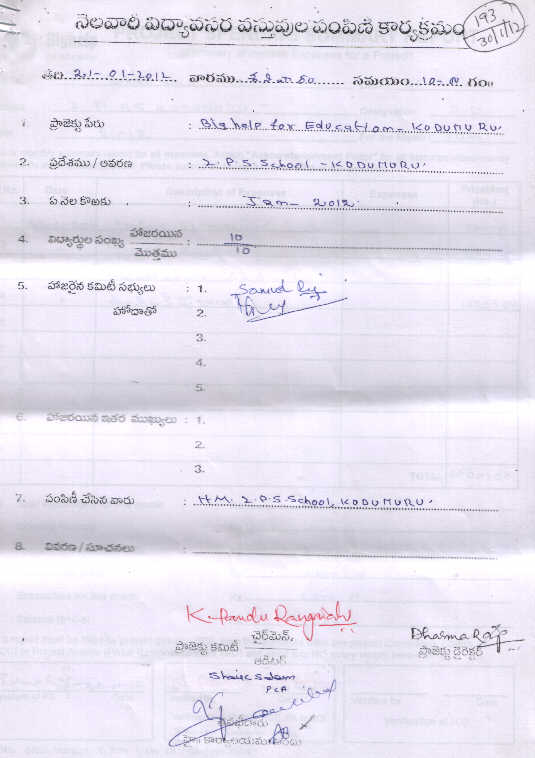 నెలవారి విద్యావసర వస్తువుల పంపిణి కార్యక్రమం
193
30/1/12
తేది 21-01-2012 వారము శనివారం సమయం 10-00 గం॥
1. ప్రాజెక్టు పేరు : Big help for Education - KODUMURU.
2. ప్రదేశము / ఆవరణ : Z.P.S. School - KODUMURU.
3. ఏ నెల కొఱకు : Jan - 2012.
4. విద్యార్థుల సంఖ్య హాజరయిన / మొత్తము : 10 / 10
5. హాజరైన కమిటీ సభ్యులు : 1.
హోదాతో 2.
3.
4.
5.
6. హాజరయిన ఇతర ముఖ్యులు : 1.
2.
3.
7. పంపిణీ చేసిన వారు : H.M. Z.P.S. School, KODUMURU.
8. వివరణ / సూచనలు :
K. Pandu Rangaiah
ప్రాజెక్టు కమిటీ ఛైర్‌మెన్,
ఆడిటర్
Dharma Raju
ప్రాజెక్టు డైరెక్టర్
Shaik Salam
PCA